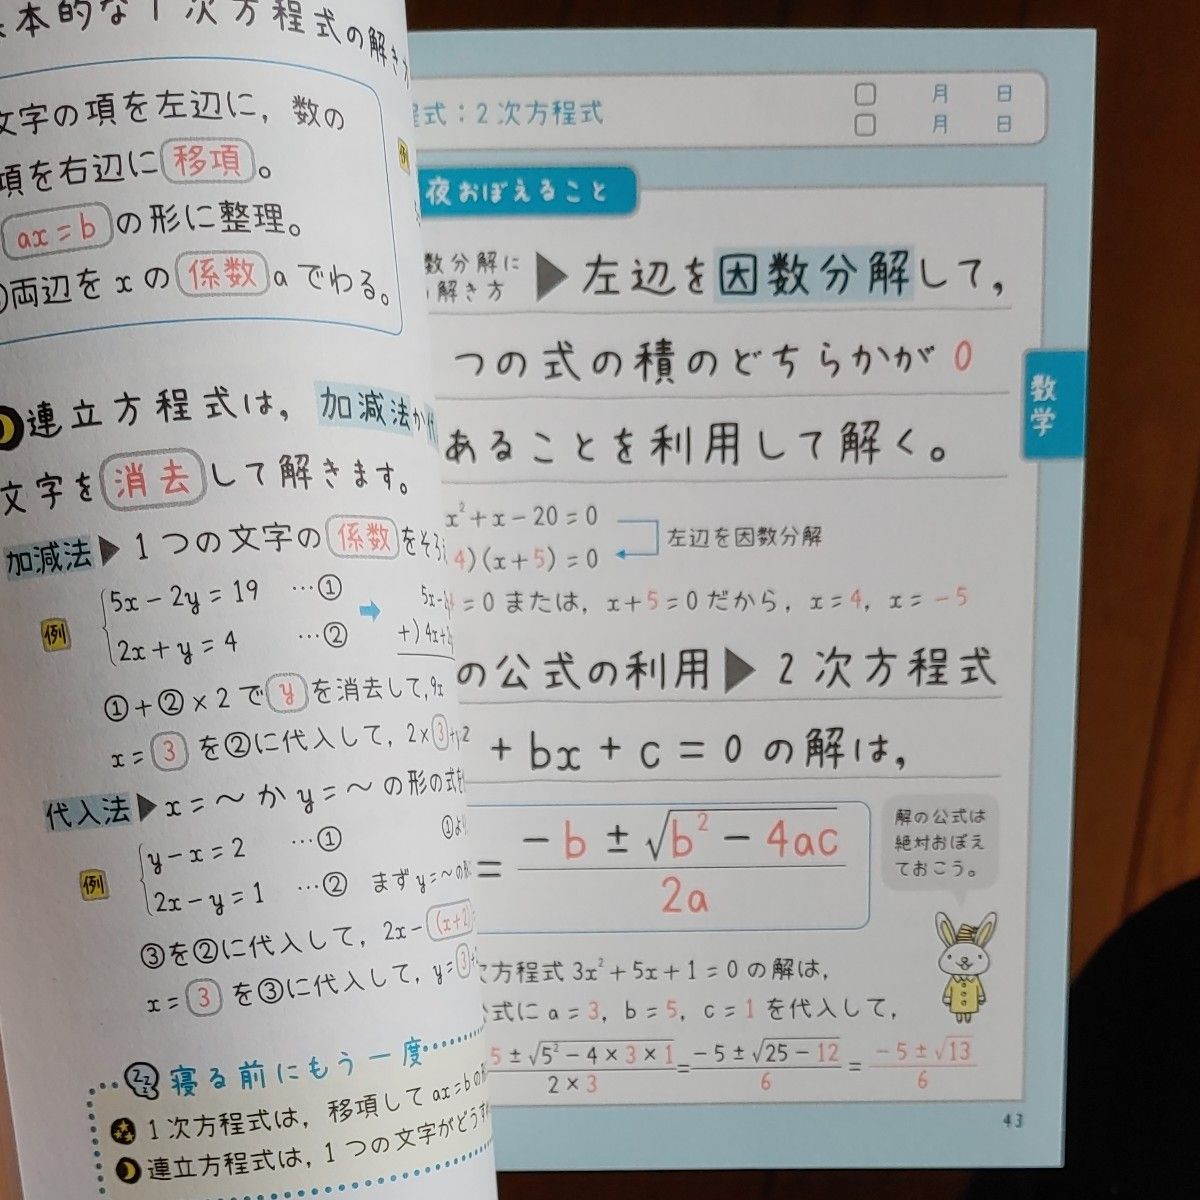 本的な1次方程式の解き方
文字の項を左辺に，数の
項を右辺に移項。
ax=bの形に整理。
両辺をxの係数aでわる。
例
連立方程式は，加減法か
文字を消去して解きます。
加減法▶1つの文字の係数をそろ
例
5x－2y=19 …①
2x+y=4 …②
5x-
+)4x+2
①+②×2でyを消去して，9x
x=3を②に代入して，2×3+
代入法▶x=～かy=～の形の式を
例
y－x=2 …①
2x－y=1 …②
①より
まずy=～の形
③を②に代入して，2x－(x+2)
x=3を③に代入して，y=3
zzz 寝る前にもう一度
1次方程式は，移項してax=bの
連立方程式は，1つの文字がどうす
程式：2次方程式
□ 月 日
□ 月 日
夜おぼえること
数分解に
解き方
▶左辺を因数分解して，
つの式の積のどちらかが0
あることを利用して解く。
x²+x－20=0
4)(x+5)=0
左辺を因数分解
=0または，x+5=0だから，x=4，x=－5
の公式の利用▶2次方程式
+bx+c=0の解は，
=(－b±√(b²－4ac))/2a
解の公式は
絶対おぼえ
ておこう。
次方程式3x²+5x+1=0の解は，
公式にa=3，b=5，c=1を代入して，
5±√(5²－4×3×1)/(2×3)=(－5±√(25－12))/6=(－5±√13)/6
数学
43